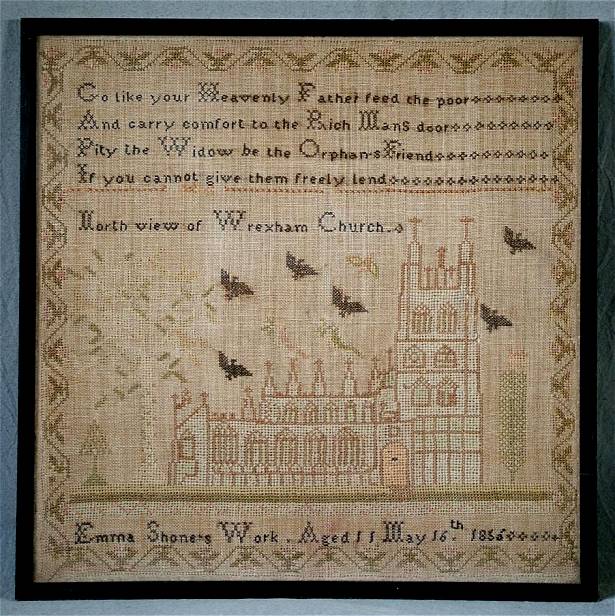 Go like your Heavenly Father feed the poor
And carry comfort to the Rich Mans door
Pity the Widow be the Orphan·s Friend
If you cannot give them freely lend
North view of Wrexham Church.
Emma Shone·s Work. Aged 11 May 16.th 1856